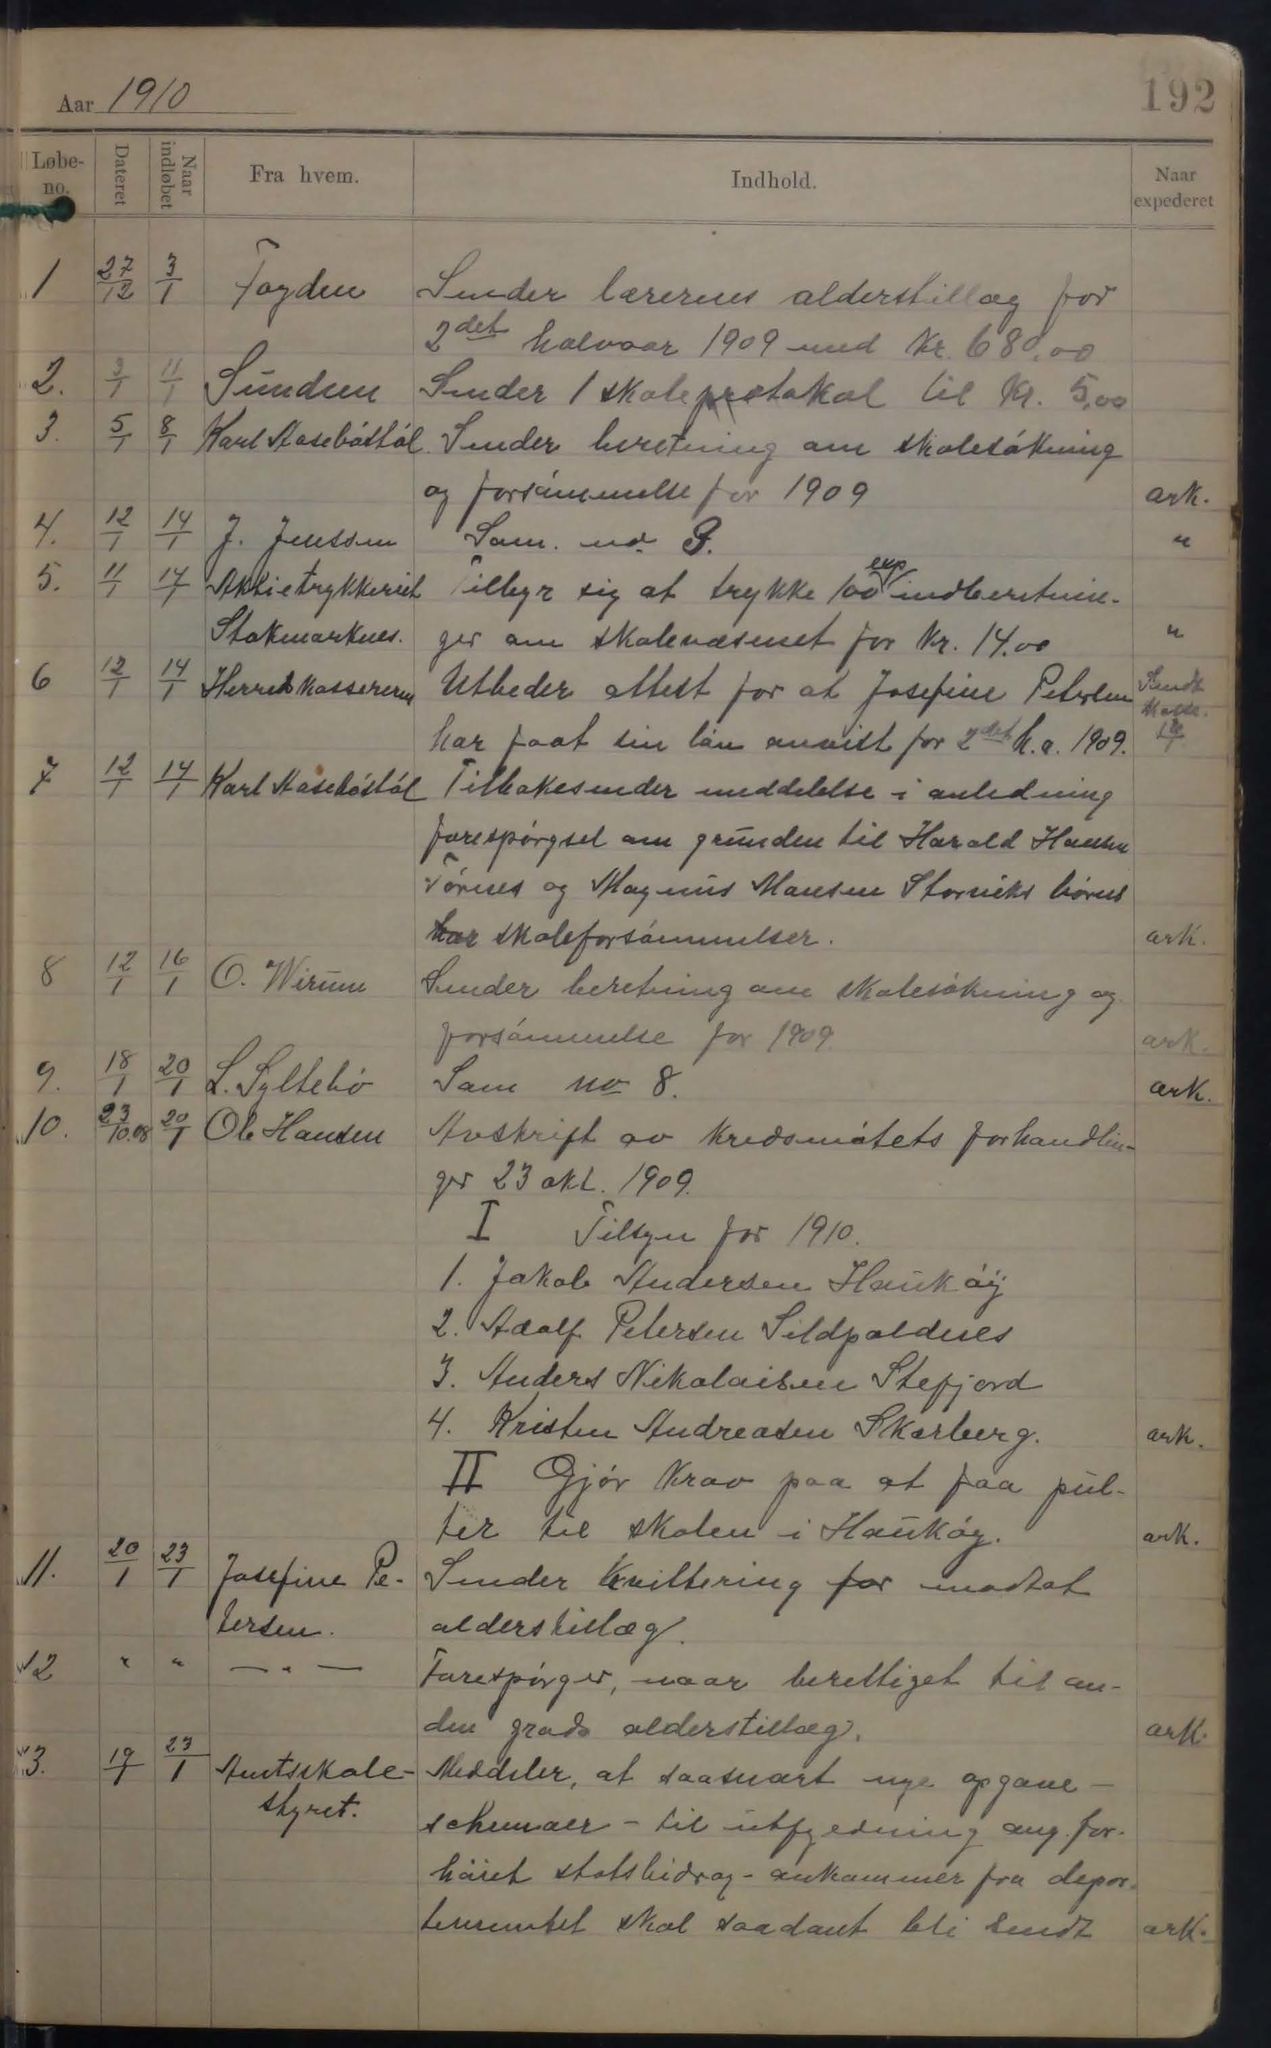 192
Aar 1910
Løbe-no. Dateret Naar indløbet Fra hvem. Indhold. Naar expederet
1 27/12 3/1 Fogden Sender lærernes alderstillæg for
2det halvaar 1909 med Kr. 680,00
2. 3/1 11/1 Sundem Sender 1 skoleprotokol til Kr. 5,00
3. 5/1 8/1 Karl Aasebøstøl Sender beretning om skolesøkning
og forsømmelse for 1909 ark.
4. 12/1 14/1 J. Jenssen Sam. no. 3. "
5. 11/1 14/1 Aktietrykkeriet Tilbyr sig at trykke 100 exp indberetnin-
Stokmarknes. ger om skolevæsenet for Kr. 14.00 "
6 12/1 14/1 Herredskassereren Utbeder attest for at Josefine Petersen Sendt
har faat sin løn anvist for 2det h.a. 1909.
7 12/1 14/1 Karl Aasebøstøl Tilbakesender meddelelse i anledning
forespørgsel om grunden til Harald Hansen
Tørnes og Magnus Hansen Storviks børns
har skoleforsømmelser. ark.
8 12/1 16/1 O. Wirum Sender beretning om skolesøkning og
forsømmelse for 1909 ark.
9. 18/1 20/1 L. Syltebø Sam no 8. ark.
10. 23/10.08 20/1 Ole Hansen Avskrift av kredsmøtets forhandlin-
ger 23 okt. 1909.
I Tilsyn for 1910.
1. Jakob Andersen Haukøy
2. Adolf Petersen Sildpoldnes
3. Anders Nikolaisen Stefjord
4. Kristen Andreasen Skarberg. ark.
II Gjør krav paa at faa pul-
ter til skolen i Haukøy. ark.
11. 20/1 23/1 Josefine Pe- Sender kvittering for modtat
tersen. alderstillæg.
12 " " — " — Forespørger, naar berettiget til an-
den grads alderstillæg. ark.
13. 19/1 23/1 Amtsskole- Meddeler, at saasnart nye opgave-
styret. schemaer - til utfyldning ang. for-
høiet statsbidrag - ankommer fra depar-
tementet skal saadant bli sendt ark.